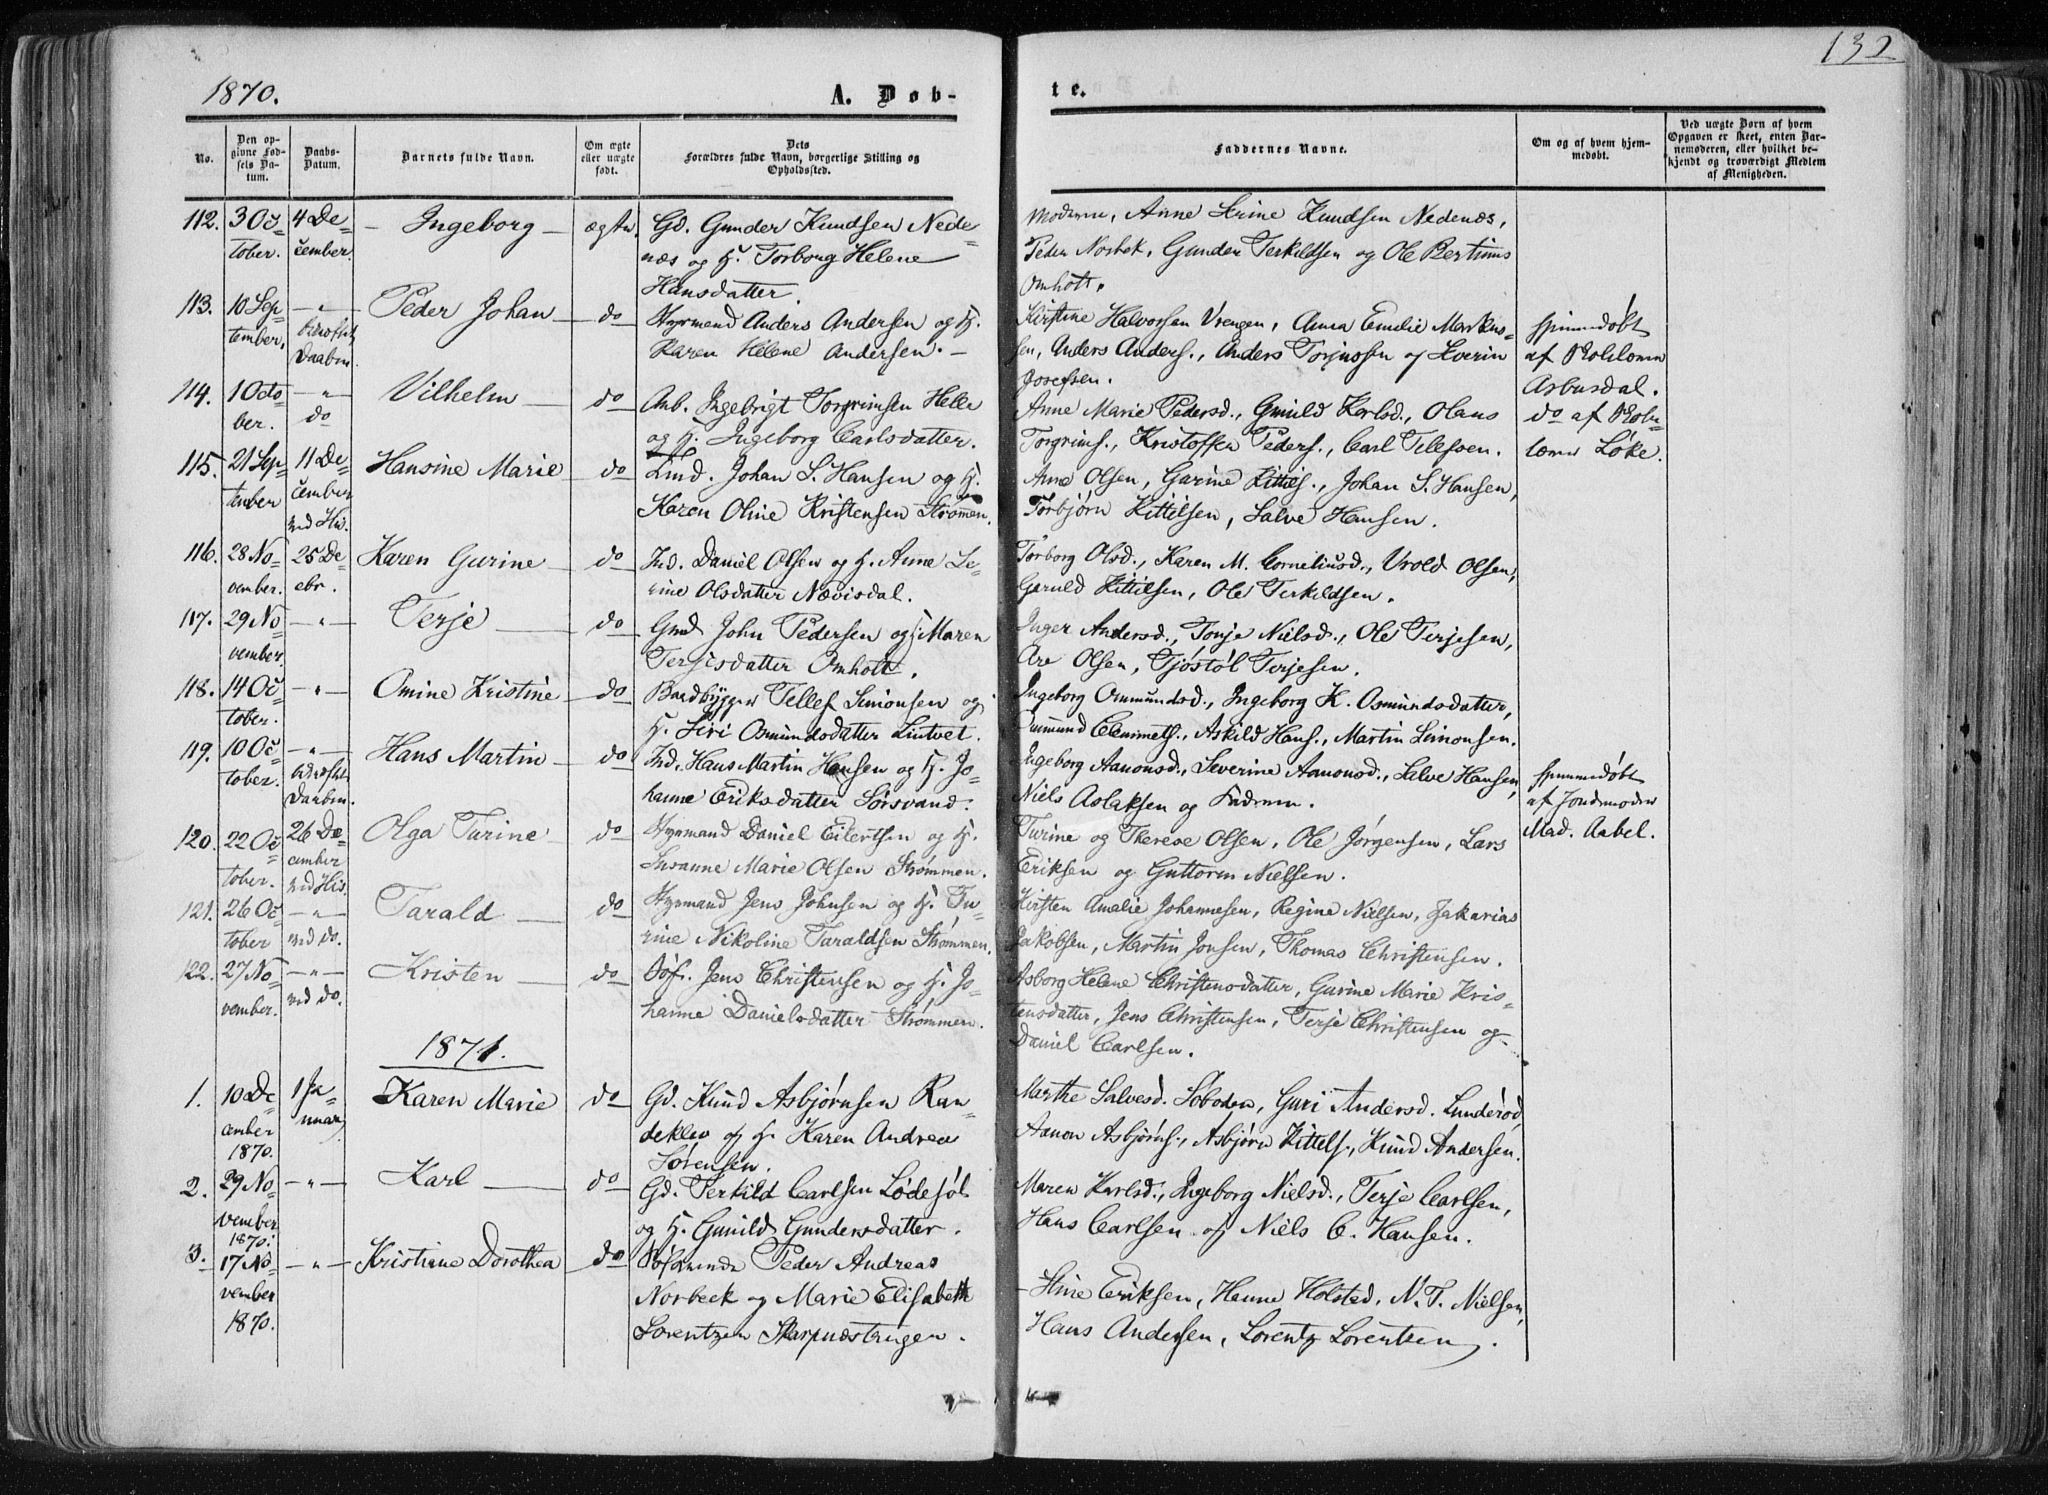 132
1870.
A. Døb-
te.
No.
Den op-
givne Fød-
sels Da-
tum.
Daabs-
Datum.
Barnets fulde Navn.
Om ægte
eller uægte
født.
Dets
Forældres fulde Navn, borgerlige Stilling og
Opholdssted.
Faddernes Navne.
Om og af hvem hjem-
medøbt.
Ved uægte Børn af hvem
Opgaven er skeet, enten Bar-
nemoderen, eller hvilket be-
kjendt og troværdigt Medlem
af Menigheden.
112. 3 Oc- 4 De- Ingeborg ægte. Gd. Gunder Knudsen Nede-
tober. cember. næs og H. Torborg Helene
Hansdatter.
Moderen, Anne Serine Knudsen Nedenæs,
Peder Norbek, Gunder Terkildsen og Ole Bertinius
Omholt.
113. 10 Sep- — " — Peder Johan do Styrmand Anders Andersen og H.
tember. Daaben Karen Helene Andersen. —
Kirstine Halvorsen Vrengen, Anna Emilie Markus-
sen, Anders Anders., Anders Torjussen og Severin
Josefsen.
hjemmedøbt
af
Asbusdal.
114. 1 Octo- — " — Vilhelm do Anb. Ingebrigt Torgrimsen Helle
ber. do og H. Ingeborg Carlsdatter.
Anne Marie Pedersd., Gunild Karlsd., Olaus
Torgrims., Kristoffer Peders., Carl Tellefsen.
do af Skole-
lærer Løke.
115. 21 Sep- 11 De- Hansine Marie do Lind. Johan S. Hansen og H.
tember cember Karen Oline Kristensen Strømmen.
ved His.
Anne Olsen, Garine Kittils., Johan S. Hansen,
Torbjørn Kittilsen, Salve Hansen.
116. 28 No- 25 De- Karen Gurine do Ind. Daniel Olsen og H. Anne Se-
vember. cbr. rine Olsdatter Nævisdal.
Torborg Olsd., Karen M. Corneliusd., Vrold Olsen,
Geruld Kittilsen, Ole Terkildsen.
117. 29 No- — " — Terje do Gmd John Pedersen og H. Maren
vember. Terjesdatter Omholt.
Inger Andersd., Tonje Nielsd., Ole Terjesen,
Are Olsen, Tjøstøl Terjesen.
118. 14 Oc- — " — Omine Kristine do Baadbygger Tellef Simonsen og
tober. H. Siri Osmundsdatter Lintvet.
Ingeborg Ommundsd., Ingeborg K. Osmundsdatter,
Gunmund Clemmets., Askild Hans., Martin Simonsen.
119. 10 Oc- — " — Hans Martin do Ind. Hans Martin Hansen og H. Jo-
tober. Daaben. hanne Eriksdatter Sørsvand.
Ingeborg Aanonsd., Severine Aanonsd., Salve Hansen,
Niels Aslaksen og Faderen.
hjemmedøbt
af Jordmoder
Mad. Aabel.
120. 22 Oc- 26 De- Olga Turine do Styrmand Daniel Eilertsen og H.
tober. cember Susanne Marie Olsen Strømmen.
ved His
Turine og Therese Olsen, Ole Jørgensen, Lars
Eriksen og Guttorm Nielsen.
121. 26 Oc- — " — Tarald do Styrmand Jens Johnsen og H. Tu-
tober ved do. rine Nikoline Taraldsen Strømmen.
Kirsten Amalie Johannesen, Regine Nielsen, Zakarias
Jakobsen, Martin Jonsen, Thomas Christensen.
122. 27 No- — " — Kristen do Søf. Jens Christensen og H. Jo-
vember. ved do. hanne Danielsdatter Strømmen.
Asborg Helene Christensdatter, Gurine Marie Kris-
tensdatter, Jens Christensen, Terje Christensen og
Daniel Carlsen.
1871.
1. 10 De- 1 Ja- Karen Marie do Gd. Knud Asbjørnsen Ran-
cember nuar deklev og H. Karen Andrea
1870. Sørensen.
Marthe Salvesd. Søboden, Guri Andersd. Lunderød,
Aanon Asbjørns., Asbjørn Kittels., Knud Andersen.
2. 29 No- — " — Karl do Gd. Terkild Carlsen Lødesøl
vember og H. Gunild Gundersdatter.
1870.
Maren Karlsd., Ingeborg Nielsd., Terje Carlsen,
Hans Carlsen og Niels C. Hansen.
3. 17 No- — " — Kristiane Dorothea do Søfarende Peder Andreas
vember Norbeck og Marie Elisabeth
1870. Lorentzen Skarpnæstangen.
Stine Eriksen, Hanne Holsted, N. T. Nielsen,
Hans Andersen, Lorentz Lorentsen.